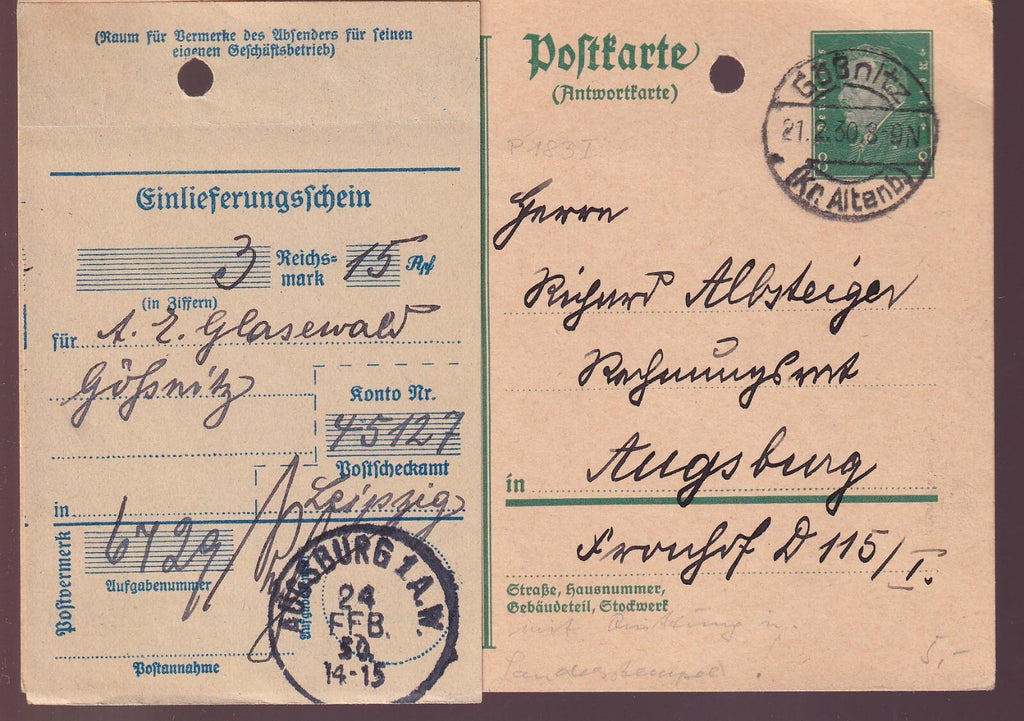 (Raum für Vermerke des Absenders für seinen
eigenen Geschäftsbetrieb)
Einlieferungsschein
3 Reichs-
mark 15 Rpf
(in Ziffern)
für A. E. Glasewald
Gößnitz
Konto Nr.
45127
Postscheckamt
Leipzig
in
6729
Aufgabenummer
Postvermerk
Postannahme
AUGSBURG 1 A.W.
24
FEB.
30.
14-15
Postkarte
(Antwortkarte)
Gößnitz
21.2.30 8-9N
(Kr. Altenb)
8 8
P 183 I
Herrn
Richard Albsteiger
Rechnungsrat
in Augsburg
Fronhof D 115/I.
Straße, Hausnummer,
Gebäudeteil, Stockwerk
mit Quittung u.
Sonderstempel.
5,-